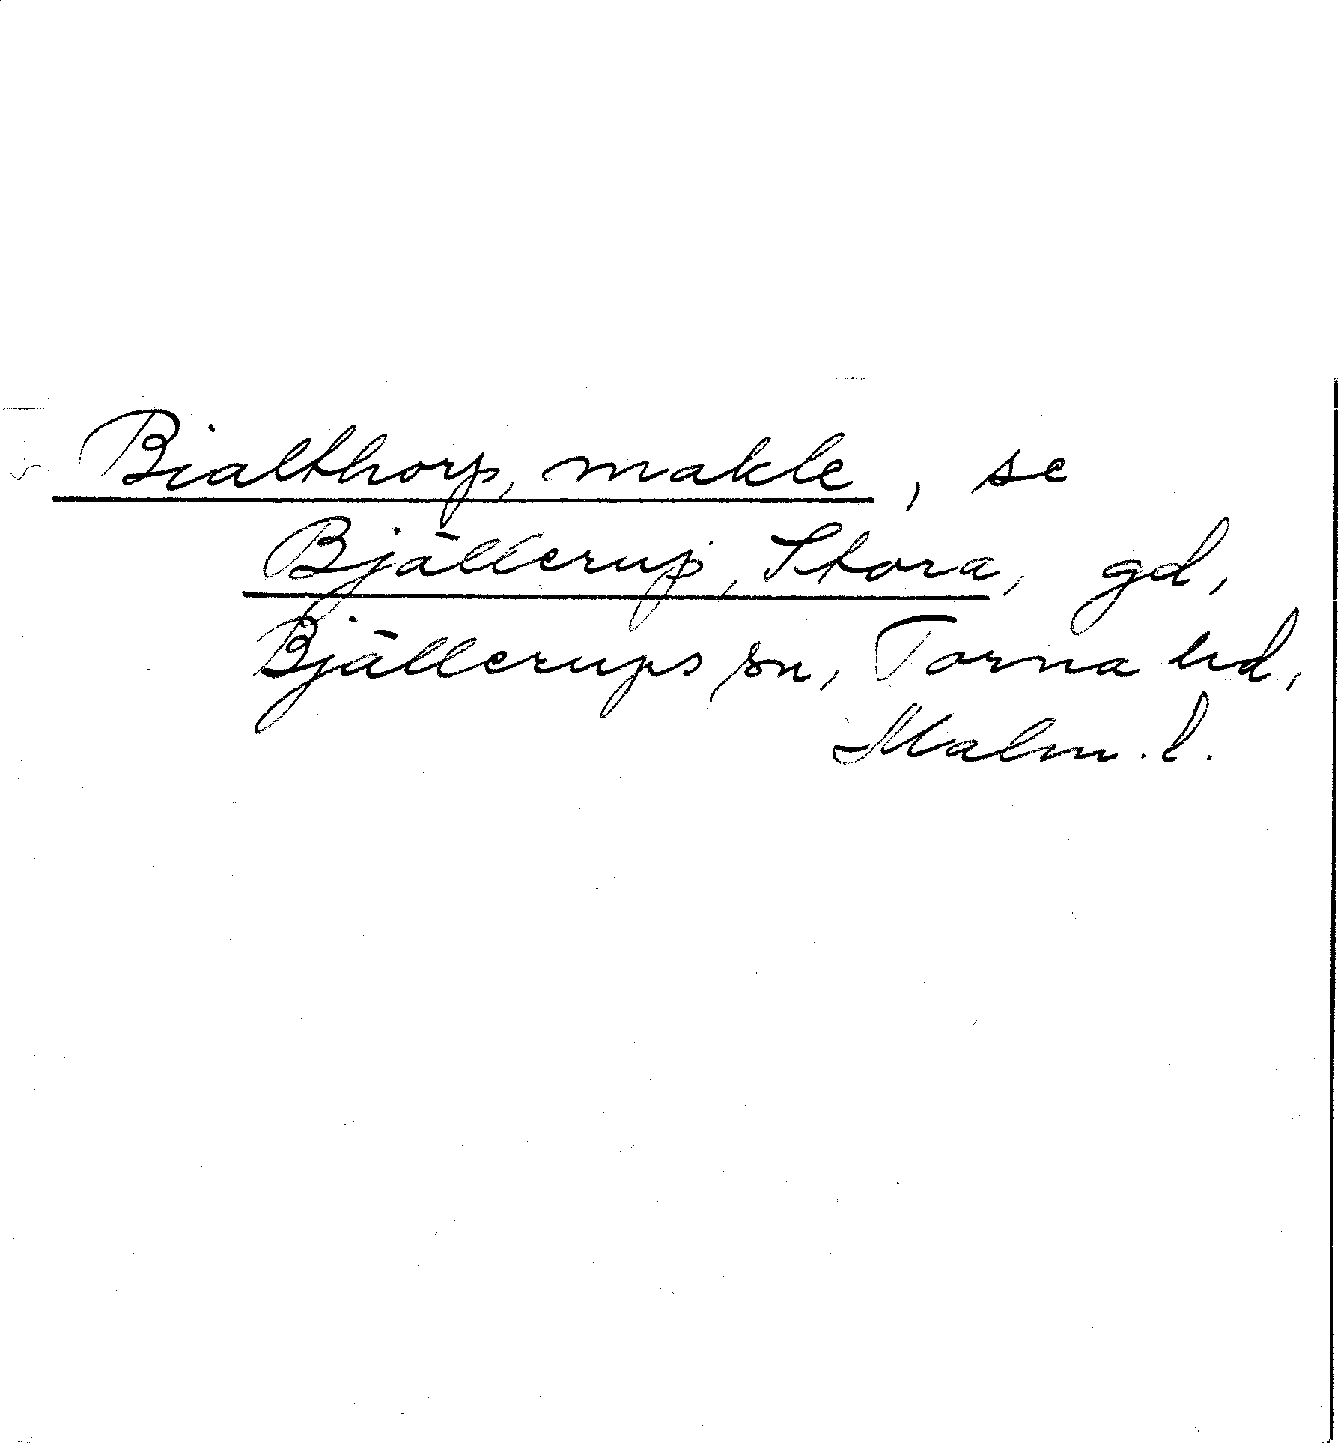 Bialthorp, makle, se
Bjällerup, Stora, gd,
Bjällerups sn, Torna hd,
Malm. l.